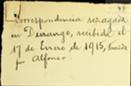 Correspondencia rezagada
en Durango, recibida el
17 de Enero de 1915,
por Alfonso.